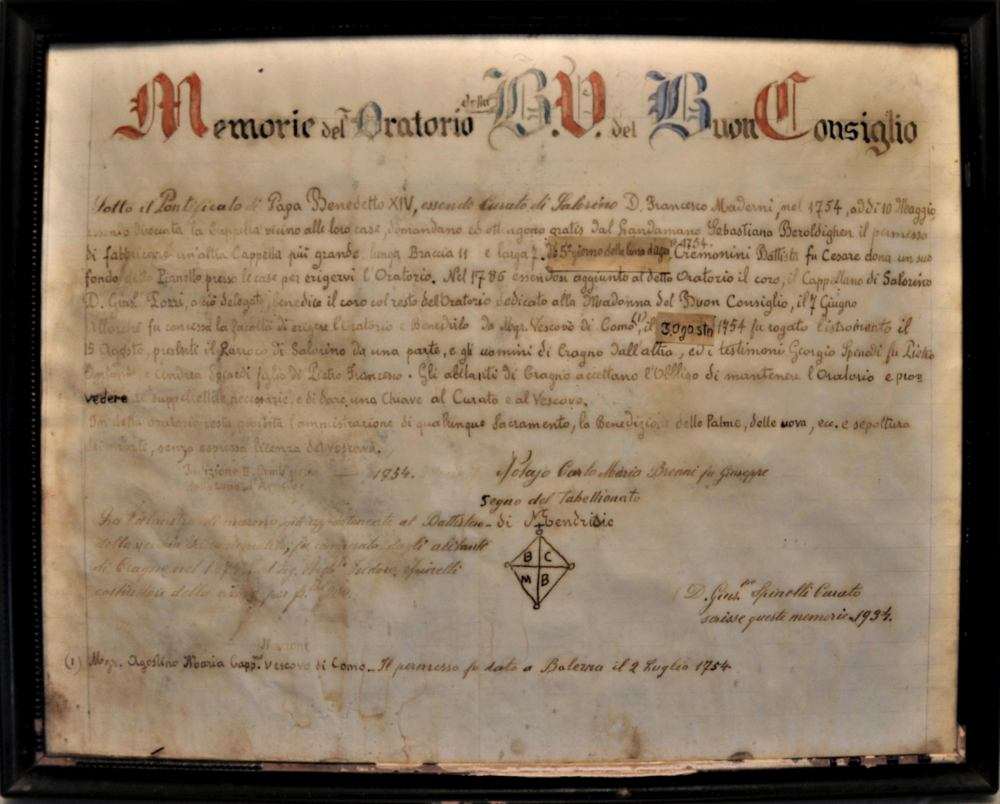 Memorie del Oratorio della B.V. del Buon Consiglio
Sotto il Pontificato di Papa Benedetto XIV, essendo Curato di Salorino D. Francesco Maderni, nel 1754, addi 10 Maggio,
la Cappella vicino alle loro case, domandano ed ottengono gratis dal Landamano Sebastiano Beroldighen il permesso
di fabbricare un'altra Cappella più grande, lunga Braccia 11 e larga 7. Il 5° giorno della luna 1754. Cremonini Battista fu Cesare dona un suo
fondo detto Pianello presso le case per erigervi l'Oratorio. Nel 1786 essendosi aggiunto al detto Oratorio il coro, il Cappellano di Salorino
D. Gius. Pozzi, a ciò delegato, benedice il coro col resto dell'Oratorio dedicato alla Madonna del Buon Consiglio, il 7 Giugno
Allorché fu concessa la facoltà di erigere l'Oratorio e Benedirlo da Mgr. Vescovo di Como (1), il 3 Agosto 1754 fu rogato l'istromento il
15 Agosto, presente il Parroco di Salorino da una parte, e gli uomini di Cragno dall'altra, ed i testimoni Georgio Spenedi fu Pietro
Antonio e Andrea figlio di Pietro Francesco. Gli abitanti di Cragno accettano l'Obbligo di mantenere l'Oratorio e pro=
vedere le suppellettile necessarie, e di dare una Chiave al Curato e al Vescovo.
In detto Oratorio resta proibita l'amministrazione di qualunque Sacramento, la Benedizione delle Palme, delle uova, ecc. e sepoltura
senza espressa licenza del Vescovo.
1754. Notajo Carlo Maria Brenni fu Giuseppe
Segno del Tabellionato
di Mendrisio
al Battistero
della vecchia fu comperata dagli abitanti
di Cragno nel Spinelli
B C
M B
D. Gius. Spinelli Curato
scrisse queste memorie 1934.
(1) Mogr. Agostino Maria Capp. Vescovo di Como - Il permesso fu dato a Balerna il 2 Luglio 1754